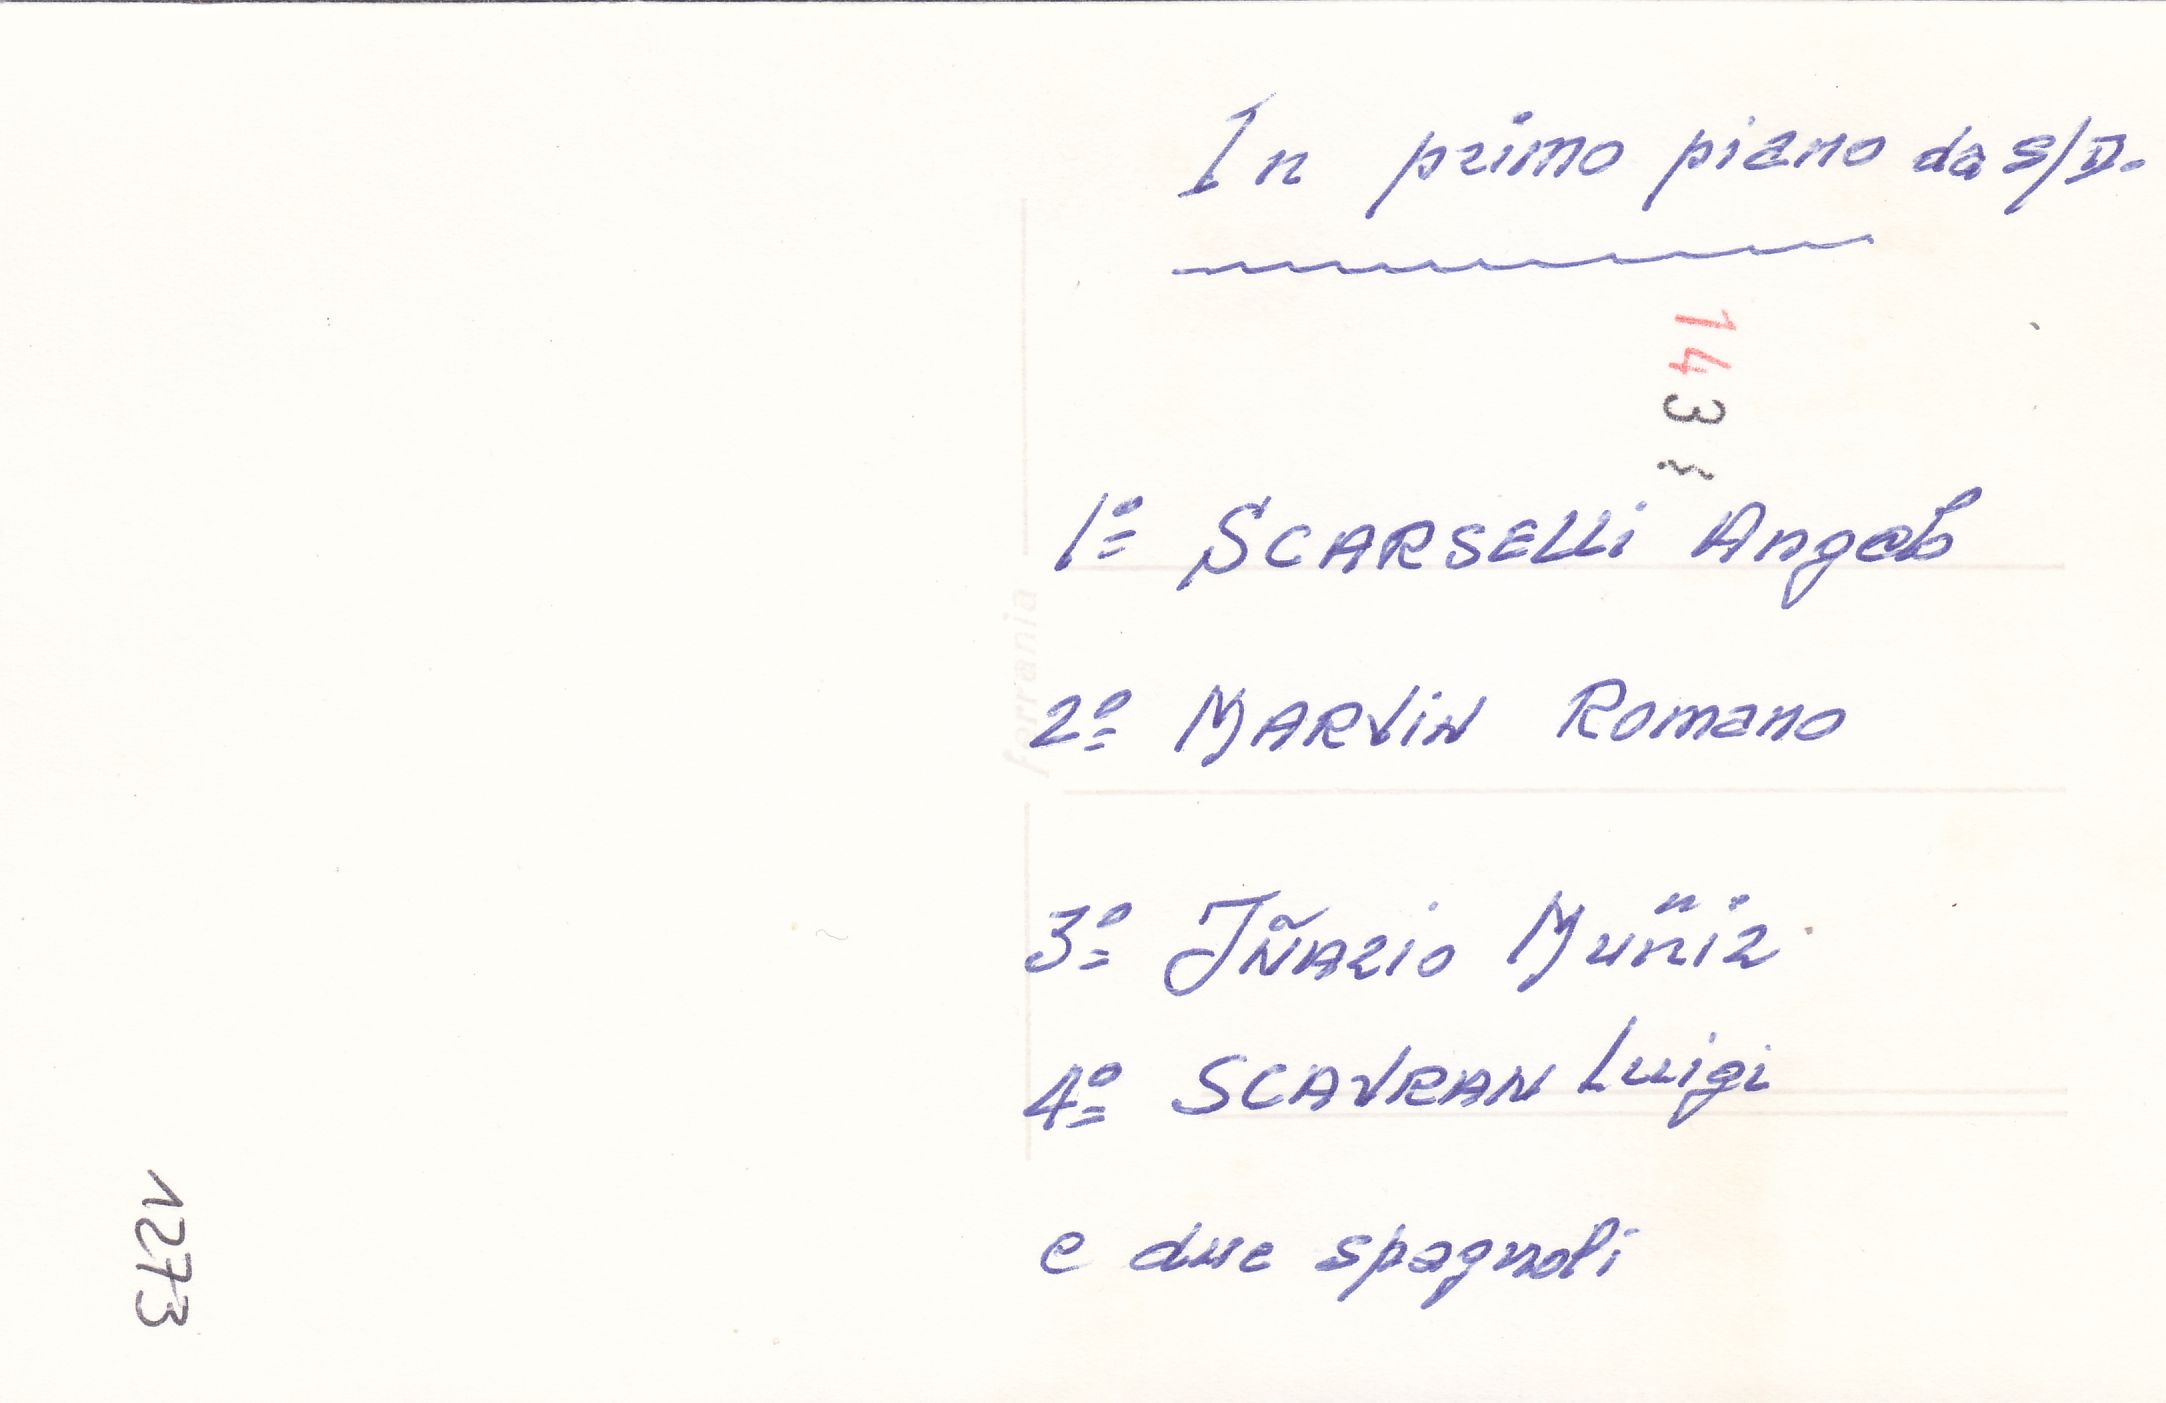 In primo piano da S/D.
143
1º SCARSELLi Angelo
ferrania
2º MARViN Romano
3º IÑAZiO Muñiz
4º SCAVRAN Luigi
e due spagnoli
1273